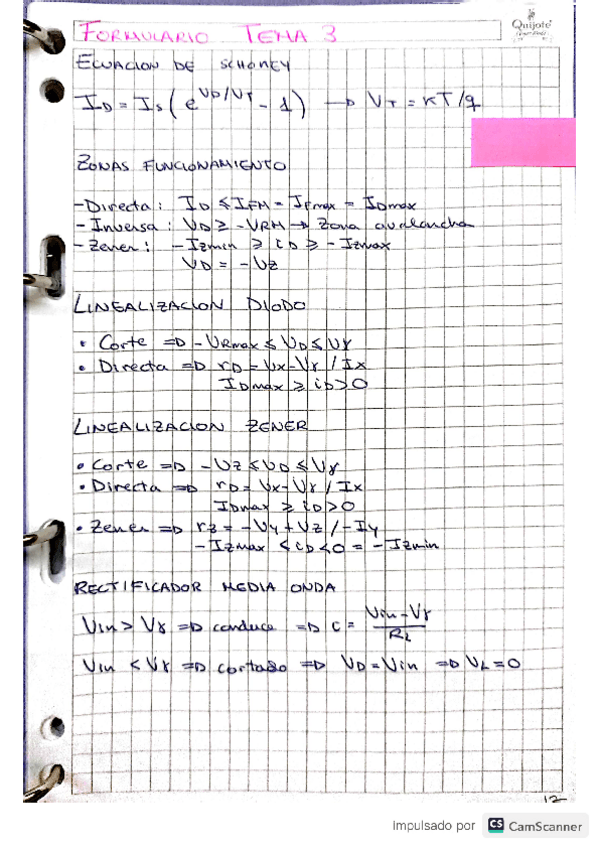 FORMULARIO TEMA 3
Quijote
ECUACION DE SCHOKEY
ID = Is ( e^VD/VT - 1 ) → VT = KT/q
ZONAS FUNCIONAMIENTO
- Directa : ID ≤ IFM = IFmax = IDmax
- Inversa : VD ≥ - VRM → Zona avalancha
- Zener : - Izmin ≥ iD ≥ - Izmax
VD = - Vz
LINEALIZACION DIODO
• Corte => - VRmax ≤ VD ≤ Vγ
• Directa => rD = Vx - Vγ / Ix
IDmax ≥ iD > 0
LINEALIZACION ZENER
• Corte => - Vz ≤ VD ≤ Vγ
• Directa => rD = Vx - Vγ / Ix
IDmax ≥ iD > 0
• Zener => rz = - Vy + Vz / - Iy
- Izmax < iD < 0 = - Izmin
RECTIFICADOR MEDIA ONDA
Vin > Vγ => conduce => C = Vin - Vγ / RL
Vin < Vγ => cortado => VD = Vin => VL = 0
12
Impulsado por CS CamScanner